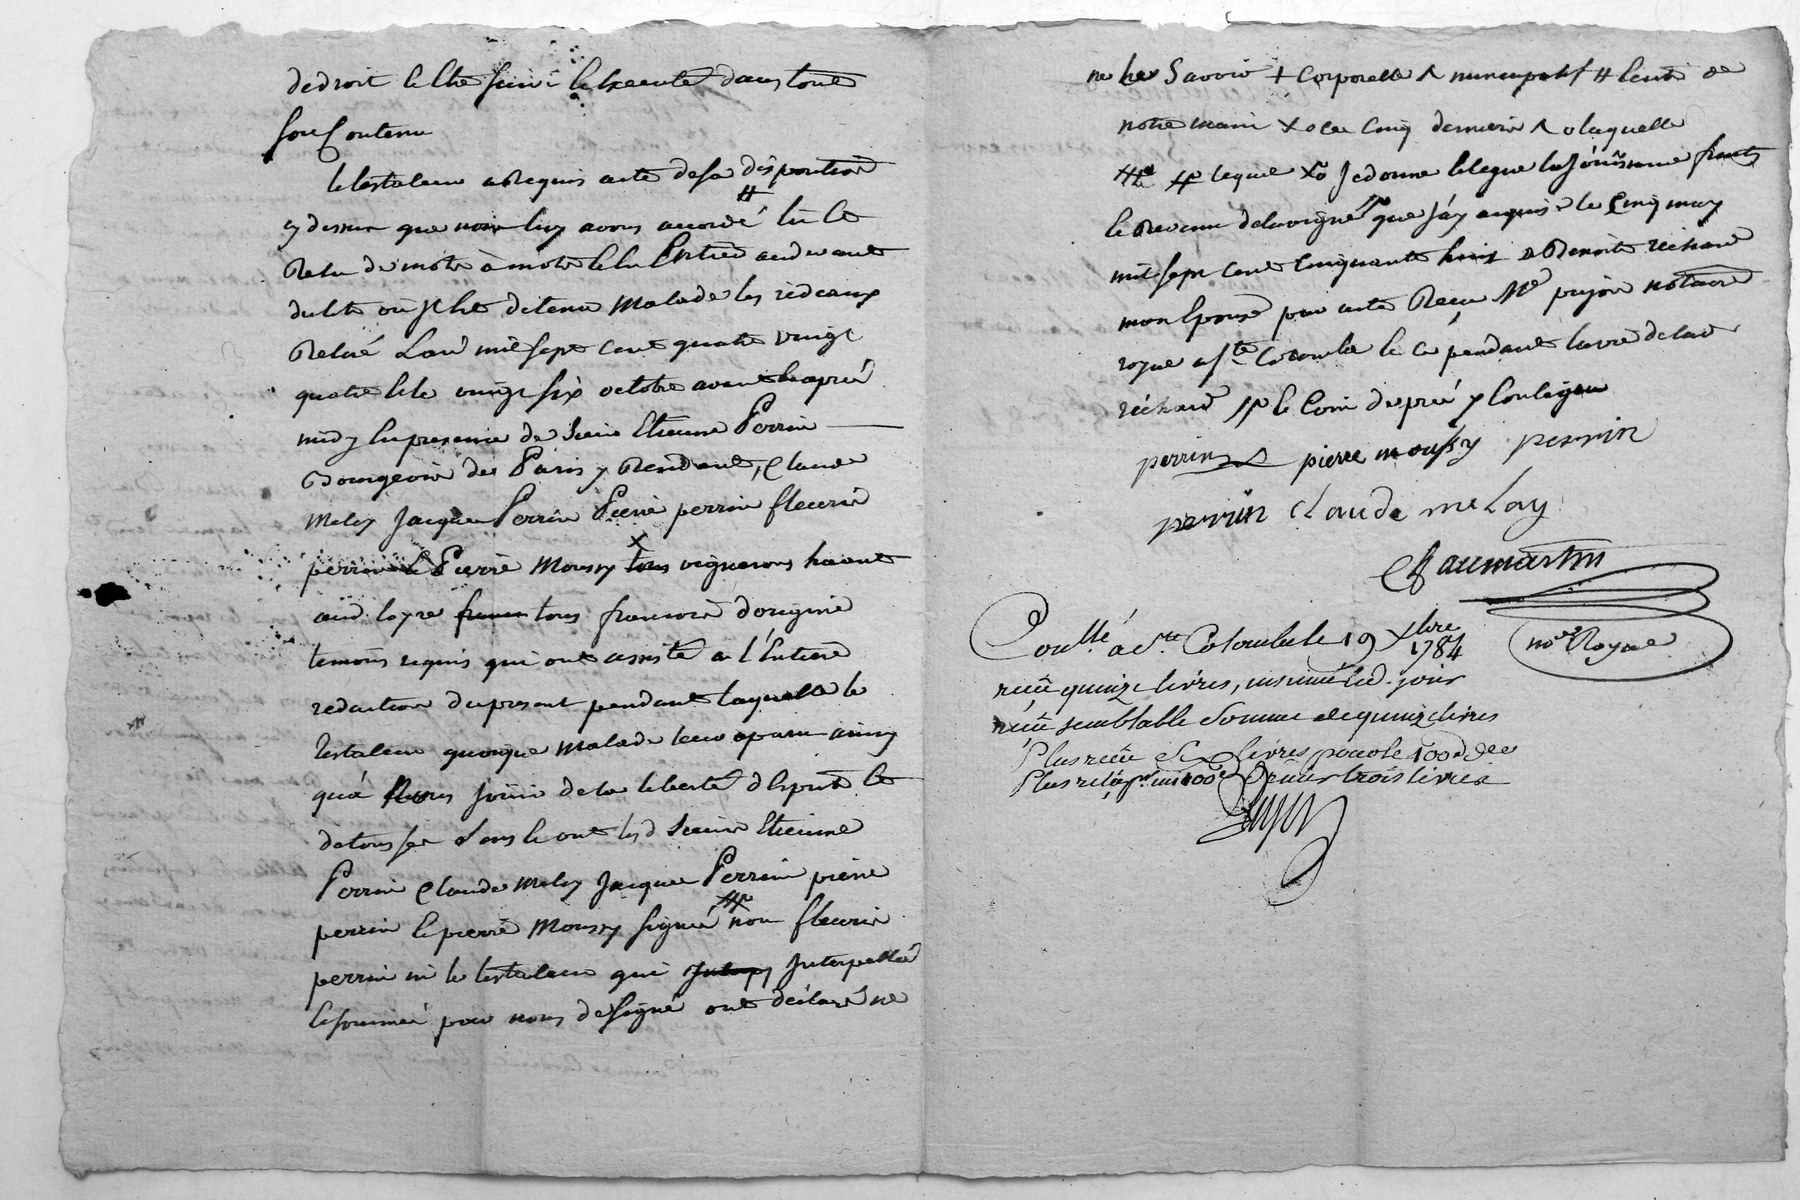 de droit et etre suivi et executé dans tout
son Contenu
le testateur a Requis acte de sa disposition
#
cy dessus que nous luy avons accordé lü et
Relu de mots à mots et en Entier audevant
du lit ou jl est detenu malade les rideaux
Retiré L'an mil sept cent quatre vingt
quatre et le vingt six octobre avant Ou après
midy En presence de Sieur Etienne Perrin
Bourgeois de Paris y Residant, Claude
Meley Jacques Perrin Pierre perrin fleurie
X
perrin & Pierre Moussy tous vignerons
aud tous francois d'origine
temoins requis qui ont assisté a l'Entiere
redaction du present pendant laquelle le
testateur quoique malade
qu'a Nous jouir de la liberté d'Esprit et
de tous ses Sens et ont les d Sieurs Etienne
Perrin Claude Meley Jacques Perrin pierre
perrin et pierre Moussy signé non fleurie
perrin ni le testateur qui Interpellé
et sommé par nous de signé ont déclaré ne
ne les Savoir + Corporelle ^ nuncupatif # Ecrit de
notre main X cinq dernier ^ o laquelle
# lequel Xo Je donne et legue la Jöuissance
le Revenu de la vigne que J'ay acquise le Cinq may
mil sept cent Cinquante huit a Benoite richard
mon Epouse par acte Recu Me pujon notaire
royal a Ste Colombe le ce pendant la vie de lad
richard le Coin du pré y Contigu
perrin pierre moussy perrin
perrin claude melay
Baumartin
nore Royal
Conllé à Ste Colombe le 19 Xbre 1784
recü quinze livres, insinüé led. jour
recü semblable Somme de quinze livres
Plus recü Six livres pour le 100e d. de
Plus recü pr. un 100e Denier trois livres
Pujon